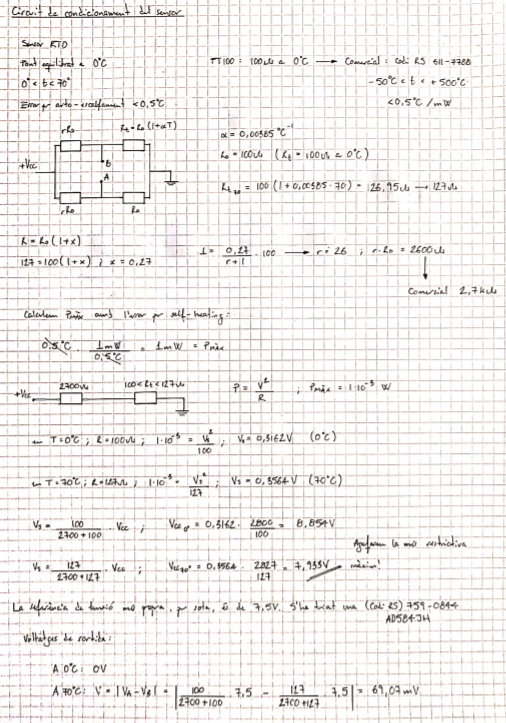 Circuit de condicionament del sensor
Sensor RTD
Pont equilibrat a 0°C
0° < t < 70°
Error per auto-escalfament < 0,5°C
PT100: 100Ω a 0°C → Comercial: Codi RS 611-7788
-50°C < t < +500°C
< 0,5°C/mW
rRo Rt = Ro(1+αT)
+Vcc
B
A
rRo Ro
α = 0,00385 °C⁻¹
Ro = 100Ω (Rt = 100Ω a 0°C)
Rt70 = 100(1+0,00385·70) = 126,95Ω → 127Ω
R = Ro(1+x)
127 = 100(1+x) ; x = 0,27
1 = 0,27/(r+1) · 100 → r = 26 ; r·Ro = 2600Ω
Comercial 2,7kΩ
Calculem Pmàx amb l'error per self-heating:
0,5°C · 1mW/0,5°C = 1mW = Pmàx
+Vcc 2700Ω 100<Rt<127Ω
P = V²/R ; Pmàx = 1·10⁻³ W
en T=0°C ; R=100Ω ; 1·10⁻³ = Vs²/100 ; Vs = 0,3162V (0°C)
en T=70°C ; R=127Ω ; 1·10⁻³ = Vs²/127 ; Vs = 0,3564V (70°C)
Vs = 100/(2700+100) · Vcc ; Vcc0° = 0,3162 · 2800/100 = 8,854V
Agafarem la més restrictiva
Vs = 127/(2700+127) · Vcc ; Vcc70° = 0,3564 · 2827/127 = 7,933V màxim!
La referència de tensió més propera, per sota, és de 7,5V. S'ha triat una (Codi RS) 759-0844
AD584JH
Voltatges de sortida:
A 0°C: 0V
A 70°C: V = |VA - VB| = |100/(2700+100) · 7,5 - 127/(2700+127) · 7,5| = 69,07mV